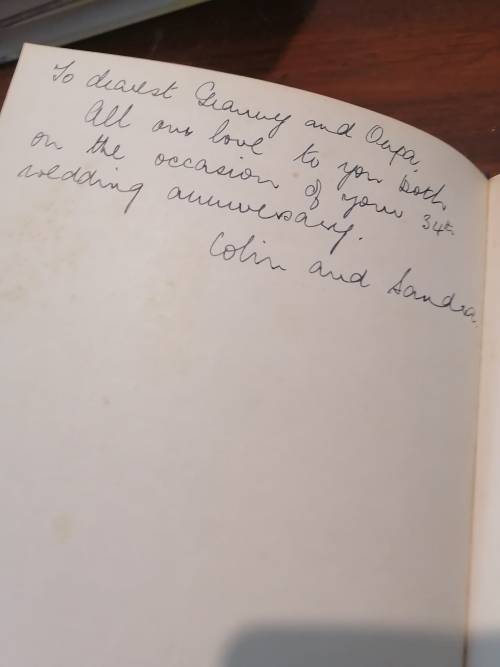 To dearest Granny and Oupa,
All our love to you both
on the occasion of your 34th
wedding anniversary.
Colin and Sandra.